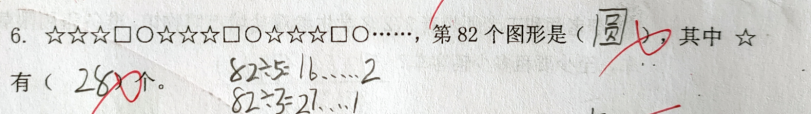 6. ☆☆☆□○☆☆☆□○☆☆☆□○……，第82个图形是（圆），其中 ☆
有（28）个。 82÷5=16……2
82÷3=27……1